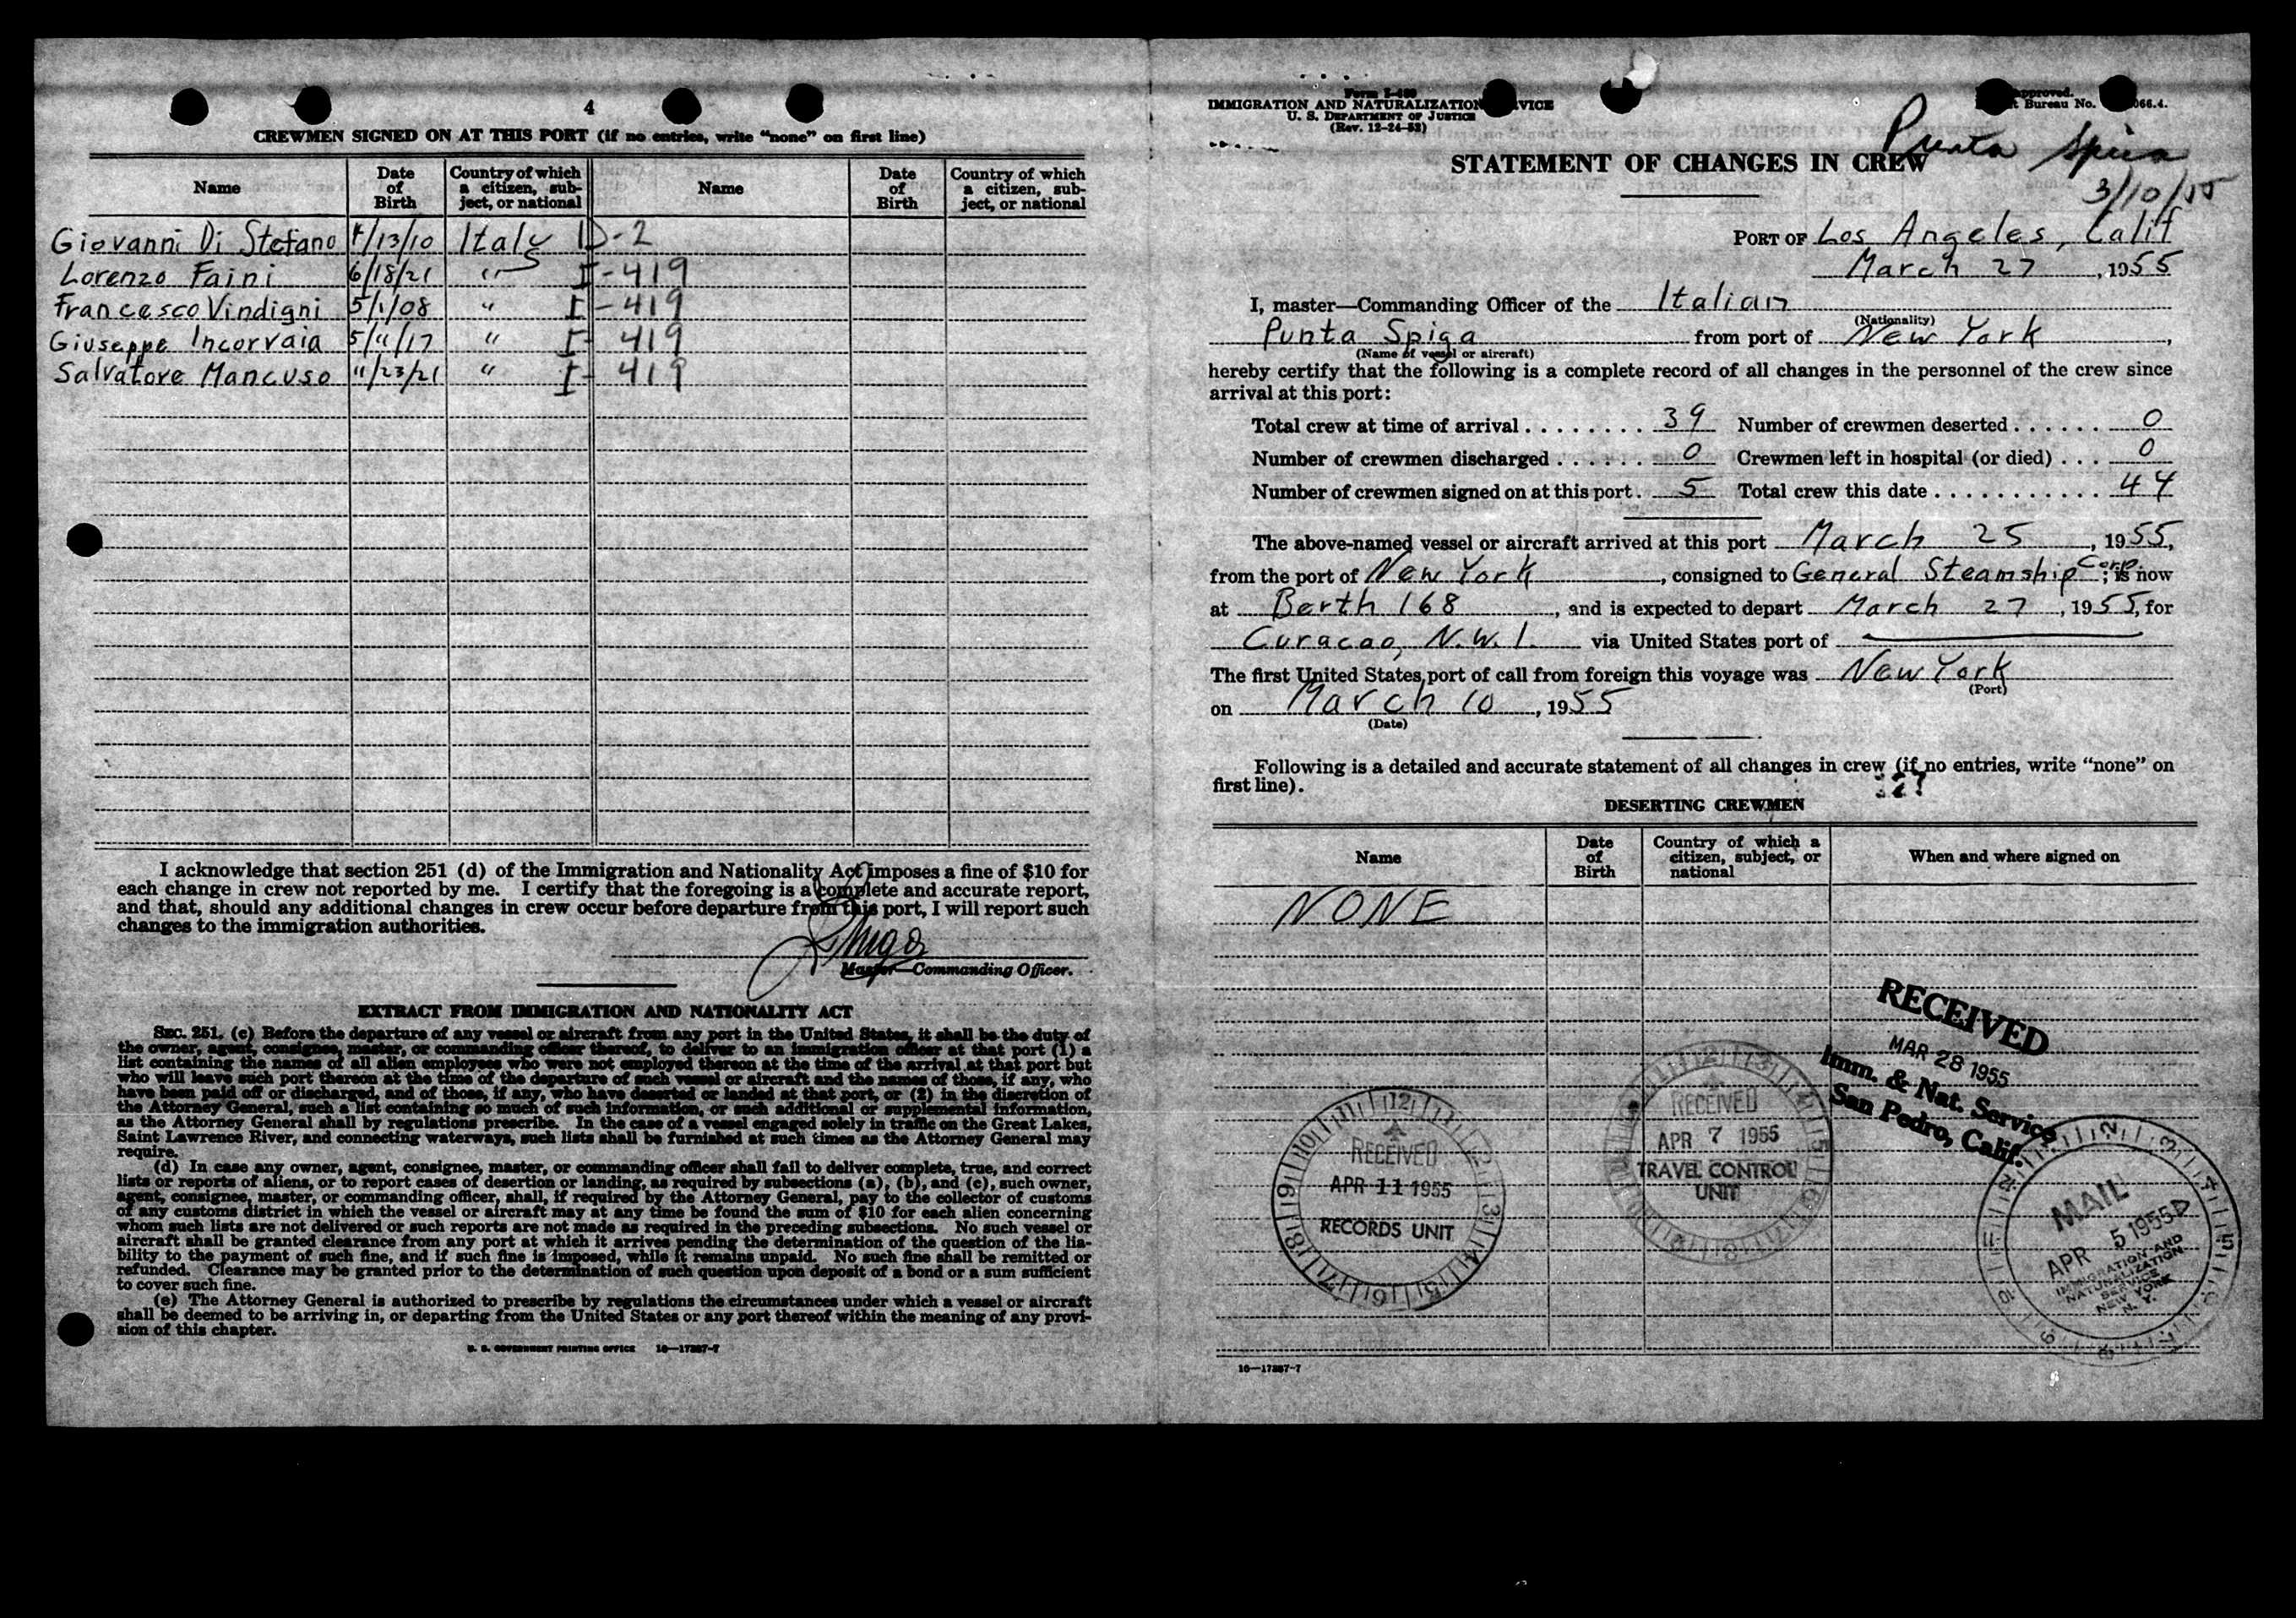 4
CREWMEN SIGNED ON AT THIS PORT (if no entries, write “none” on first line)
Name Date of Birth Country of which a citizen, subject, or national Name Date of Birth Country of which a citizen, subject, or national
Giovanni Di Stefano 4/13/10 Italy D-2
Lorenzo Faini 6/18/21 " I-419
Francesco Vindigni 5/1/08 " I-419
Giuseppe Incorvaia 5/11/17 " I-419
Salvatore Mancuso 11/23/21 " I-419
I acknowledge that section 251 (d) of the Immigration and Nationality Act imposes a fine of $10 for
each change in crew not reported by me. I certify that the foregoing is a complete and accurate report,
and that, should any additional changes in crew occur before departure from this port, I will report such
changes to the immigration authorities.
Master—Commanding Officer.
EXTRACT FROM IMMIGRATION AND NATIONALITY ACT
SEC. 251. (c) Before the departure of any vessel or aircraft from any port in the United States, it shall be the duty of
the owner, agent, consignee, master, or commanding officer thereof, to deliver to an immigration officer at that port (1) a
list containing the names of all alien employees who were not employed thereon at the time of the arrival at that port but
who will leave such port thereon at the time of the departure of such vessel or aircraft and the names of those, if any, who
have been paid off or discharged, and of those, if any, who have deserted or landed at that port, or (2) in the discretion of
the Attorney General, such a list containing so much of such information, or such additional or supplemental information,
as the Attorney General shall by regulations prescribe. In the case of a vessel engaged solely in traffic on the Great Lakes,
Saint Lawrence River, and connecting waterways, such lists shall be furnished at such times as the Attorney General may
require.
(d) In case any owner, agent, consignee, master, or commanding officer shall fail to deliver complete, true, and correct
lists or reports of aliens, or to report cases of desertion or landing, as required by subsections (a), (b), and (c), such owner,
agent, consignee, master, or commanding officer, shall, if required by the Attorney General, pay to the collector of customs
of any customs district in which the vessel or aircraft may at any time be found the sum of $10 for each alien concerning
whom such lists are not delivered or such reports are not made as required in the preceding subsections. No such vessel or
aircraft shall be granted clearance from any port at which it arrives pending the determination of the question of the lia-
bility to the payment of such fine, and if such fine is imposed, while it remains unpaid. No such fine shall be remitted or
refunded. Clearance may be granted prior to the determination of such question upon deposit of a bond or a sum sufficient
to cover such fine.
(e) The Attorney General is authorized to prescribe by regulations the circumstances under which a vessel or aircraft
shall be deemed to be arriving in, or departing from the United States or any port thereof within the meaning of any provi-
sion of this chapter.
U. S. GOVERNMENT PRINTING OFFICE 16—17287-7
Form I-489
IMMIGRATION AND NATURALIZATION VICE
U. S. DEPARTMENT OF JUSTICE
(Rev. 12-24-52)
approved.
t Bureau No. 066.4.
Punta Spiga
3/10/55
STATEMENT OF CHANGES IN CREW
PORT OF Los Angeles, Calif
March 27, 1955
I, master—Commanding Officer of the Italian
(Nationality)
Punta Spiga from port of New York,
(Name of vessel or aircraft)
hereby certify that the following is a complete record of all changes in the personnel of the crew since
arrival at this port:
Total crew at time of arrival ........ 39 Number of crewmen deserted ...... 0
Number of crewmen discharged ...... 0 Crewmen left in hospital (or died) ... 0
Number of crewmen signed on at this port. 5 Total crew this date ........... 44
The above-named vessel or aircraft arrived at this port March 25, 1955,
from the port of New York, consigned to General Steamship Corp.; is now
at Berth 168, and is expected to depart March 27, 1955, for
Curacao, N.W.I. via United States port of
The first United States port of call from foreign this voyage was New York
(Port)
on March 10, 1955
(Date)
Following is a detailed and accurate statement of all changes in crew (if no entries, write “none” on
first line).
DESERTING CREWMEN
Name Date of Birth Country of which a citizen, subject, or national When and where signed on
NONE
RECEIVED
MAR 28 1955
Imm. & Nat. Service
San Pedro, Calif.
RECEIVED
APR 7 1955
TRAVEL CONTROL
UNIT
RECEIVED
APR 11 1955
RECORDS UNIT
MAIL
APR 5 1955
IMMIGRATION AND
NATURALIZATION
SERVICE
NEW YORK
N. Y.
16—17287-7